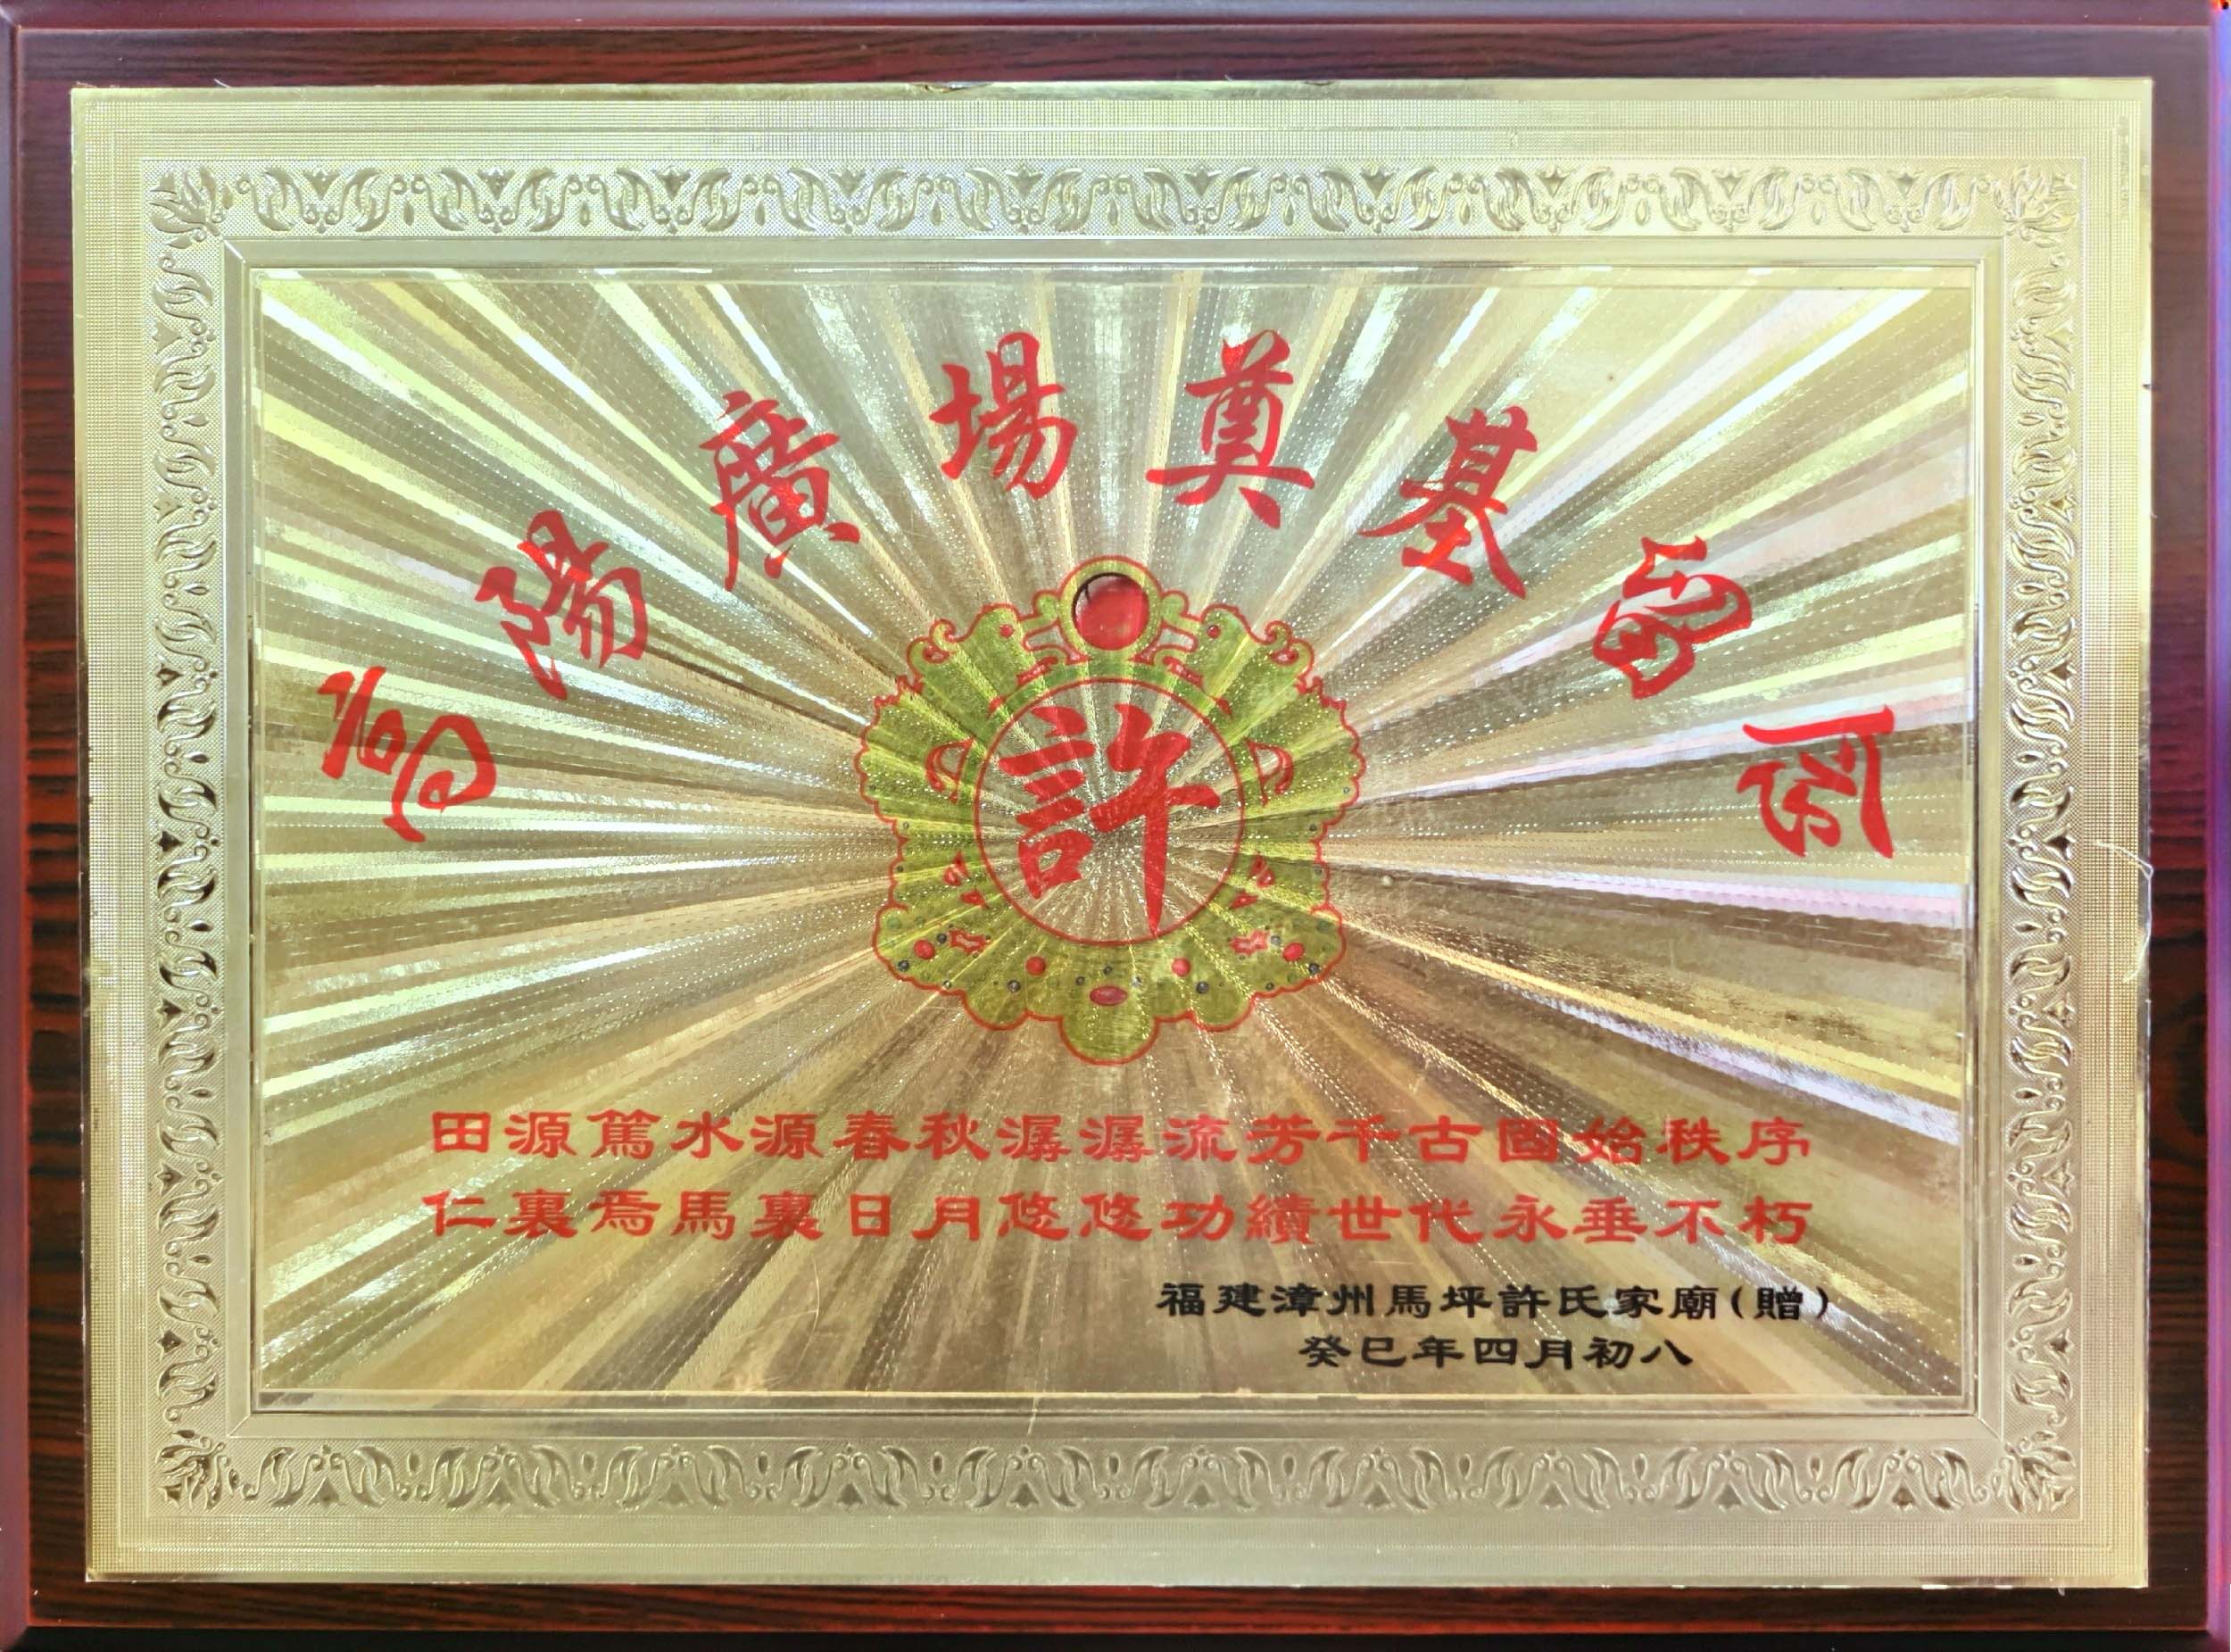 高陽廣場奠基留念
許
田源篤水源春秋潺潺流芳千古固始秩序
仁裏焉馬裏日月悠悠功績世代永垂不朽
福建漳州馬坪許氏家廟(贈)
癸巳年四月初八